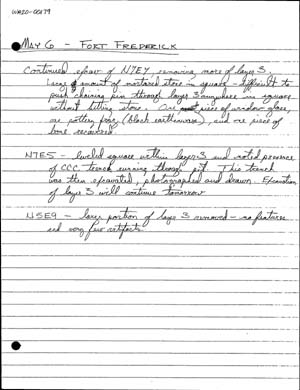 WA20-00179
MAY 6 - FORT FREDERICK
Continued excav of N7E7 removing more of layer 3.
Large amount of mortared stone in square - difficult to
push chaining pin through layer 3 anywhere in square
without hitting stone. One piece of window glass,
one pottery frag. (black earthenware), and one piece of
bone recovered.
N7E5 - leveled square within layer 3 and noted presence
of CCC trench running through pit. This trench
was then excavated, photographed and drawn. Excavation
of layer 3 will continue tomorrow
N5E9 - larger portion of layer 3 removed - no features
and very few artifacts.